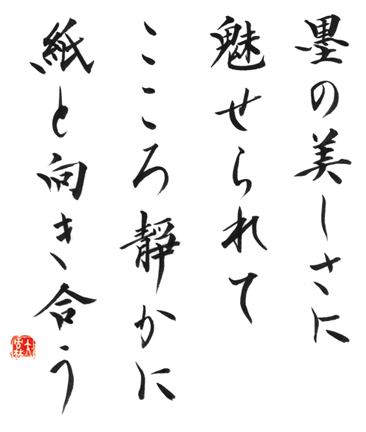 墨の美しさに
魅せられて
こころ静かに
紙と向き合う